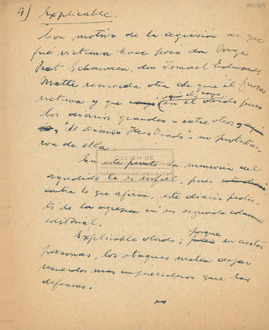 4) Explicable.
Con motivo de la agresión de que
fué víctima hace poco don Jorge
Prat Echaurren, don Ismael Edwards
Matte recuerda otra de que él fuera
víctima y que en el
los diarios grandes - entre otros
"El Diario Ilustrado" - no protesta-
ron de ella.
En este punto la memoria del
agredido le es infiel, pues
contra lo que afirma, este diario protes-
tó de la agresión en su segunda columna
editorial.
Explicable olvido, porque en ciertas
personas, los ataques suelen dejar
recuerdos mas imperecederos que las
defensas.